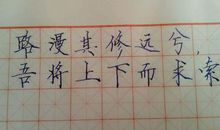 路漫其修远兮,
吾将上下而求索